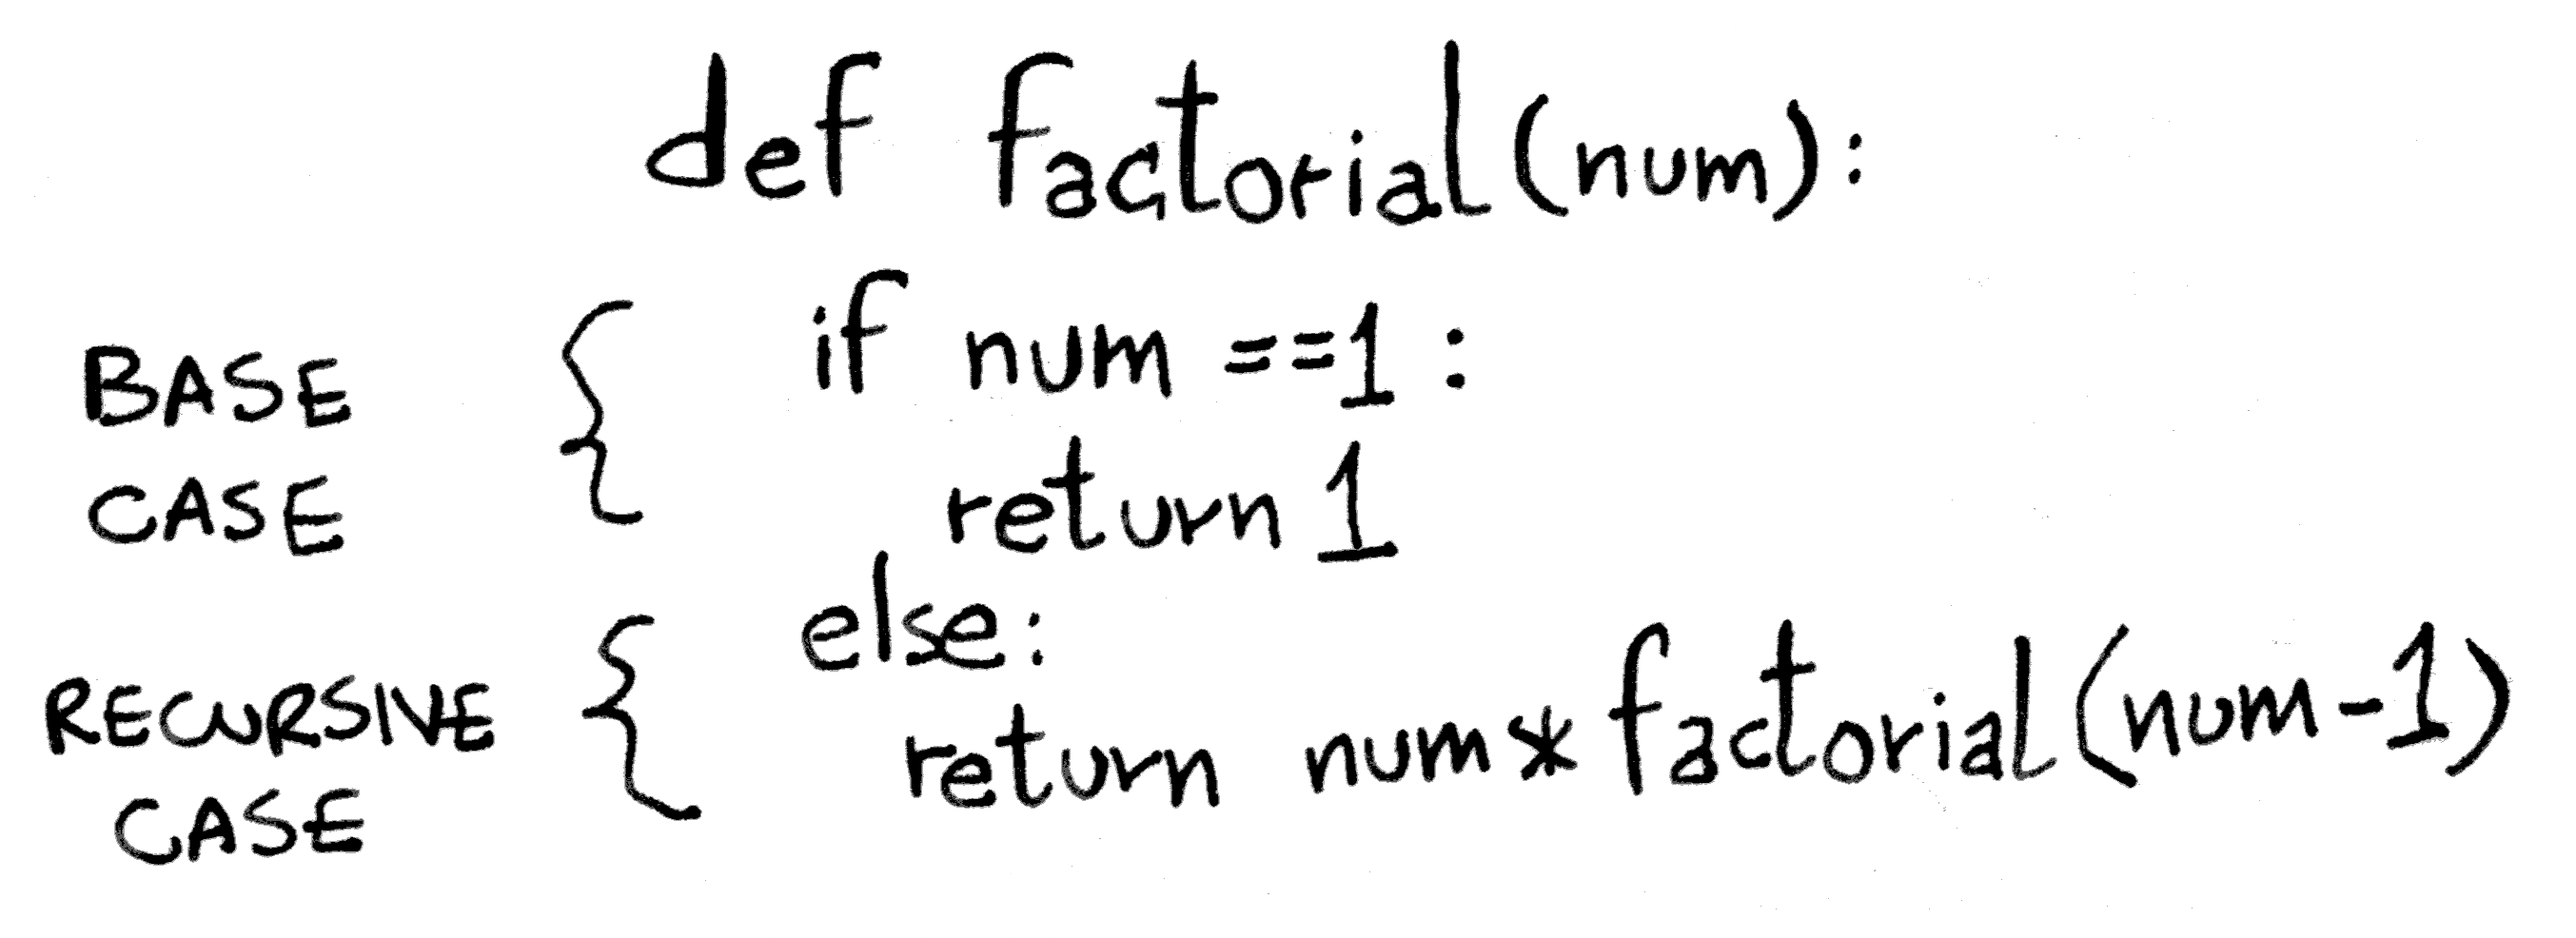 def factorial(num):
BASE CASE
if num ==1:
return 1
RECURSIVE CASE
else:
return num*factorial(num-1)